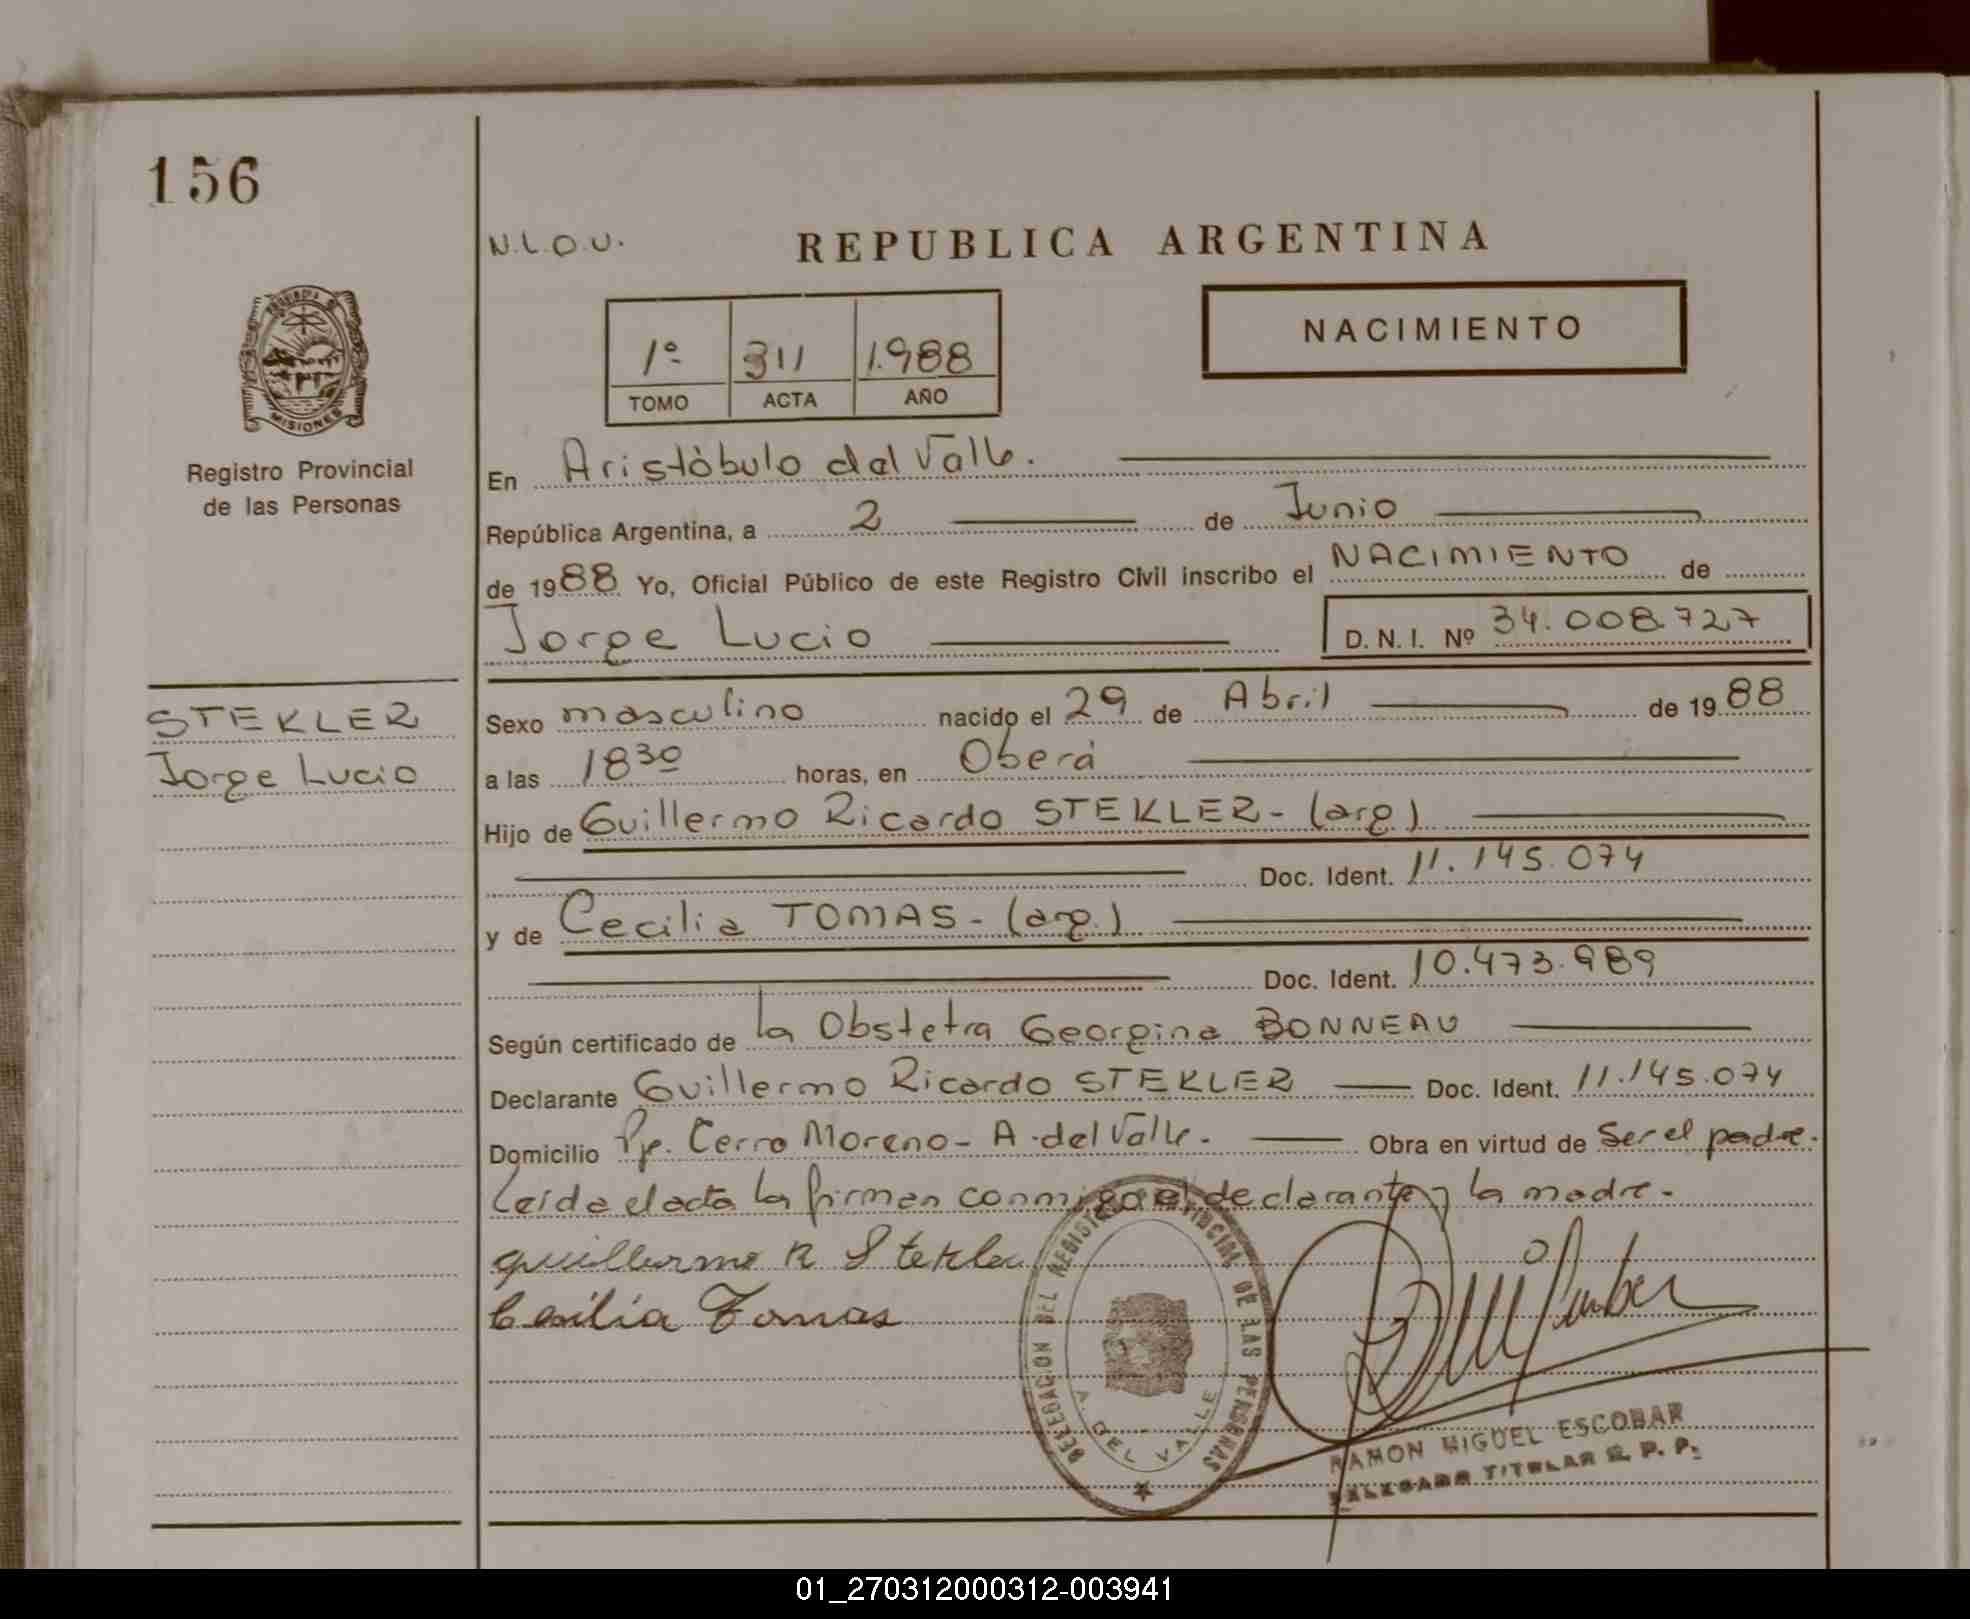 156
N.L.O.U.
REPUBLICA ARGENTINA
1º 311 1.988
TOMO ACTA AÑO
NACIMIENTO
MISIONES
Registro Provincial
de las Personas
En Aristóbulo del Valle.
República Argentina, a 2 de Junio
de 1988 Yo, Oficial Público de este Registro Civil inscribo el NACIMIENTO de
Jorge Lucio D. N. I. Nº 34.008.727
STEKLER
Jorge Lucio
Sexo masculino nacido el 29 de Abril de 1988
a las 18 30 horas, en Oberá
Hijo de Guillermo Ricardo STEKLER - (arg)
Doc. Ident. 11.145.074
y de Cecilia TOMAS - (arg.)
Doc. Ident. 10.473.989
Según certificado de la Obstetra Georgina BONNEAU
Declarante Guillermo Ricardo STEKLER Doc. Ident. 11.145.074
Domicilio Pje. Cerro Moreno - A. del Valle. Obra en virtud de Ser el padre.
Leída el acta la firman conmigo el declarante y la madre.
guillermo R Stekler
Cesilia Tomas
DELEGACION DEL REGISTRO PROVINCIAL DE LAS PERSONAS
A. DEL VALLE
RAMON MIGUEL ESCOBAR
DELEGADO TITULAR R. P. P.
01_270312000312-003941